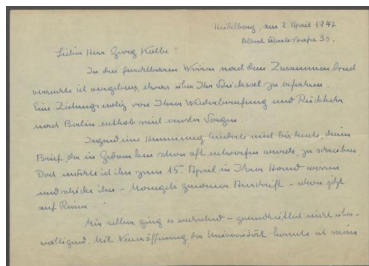 Heidelberg, am 2. April 1947
Albert Ueberle-Straße 3
Lieber Herr Georg Kolbe!
In den furchtbaren Wirren nach dem Zusammenbruch
versuchte ich vergebens, etwas über Ihr Schicksal zu erfahren.
Eine Zeitungsnotiz von Ihrer Wiederberufung und Rückkehr
nach Berlin enthob mich vieler Sorgen
Irgend eine Hemmung hinderte mich bis heute, den
Brief, der in Gedanken schon oft entworfen wurde, zu schreiben
Doch möchte ich ihn zum 15. April in Ihrer Hand wissen
und schicke ihn - Mangels genauer Anschrift - schon jetzt
auf Reisen.
Mir selber ging es wechselnd - gesundheitlich nicht über-
wältigend. Mit Neueröffnung der Universität konnte ich meine